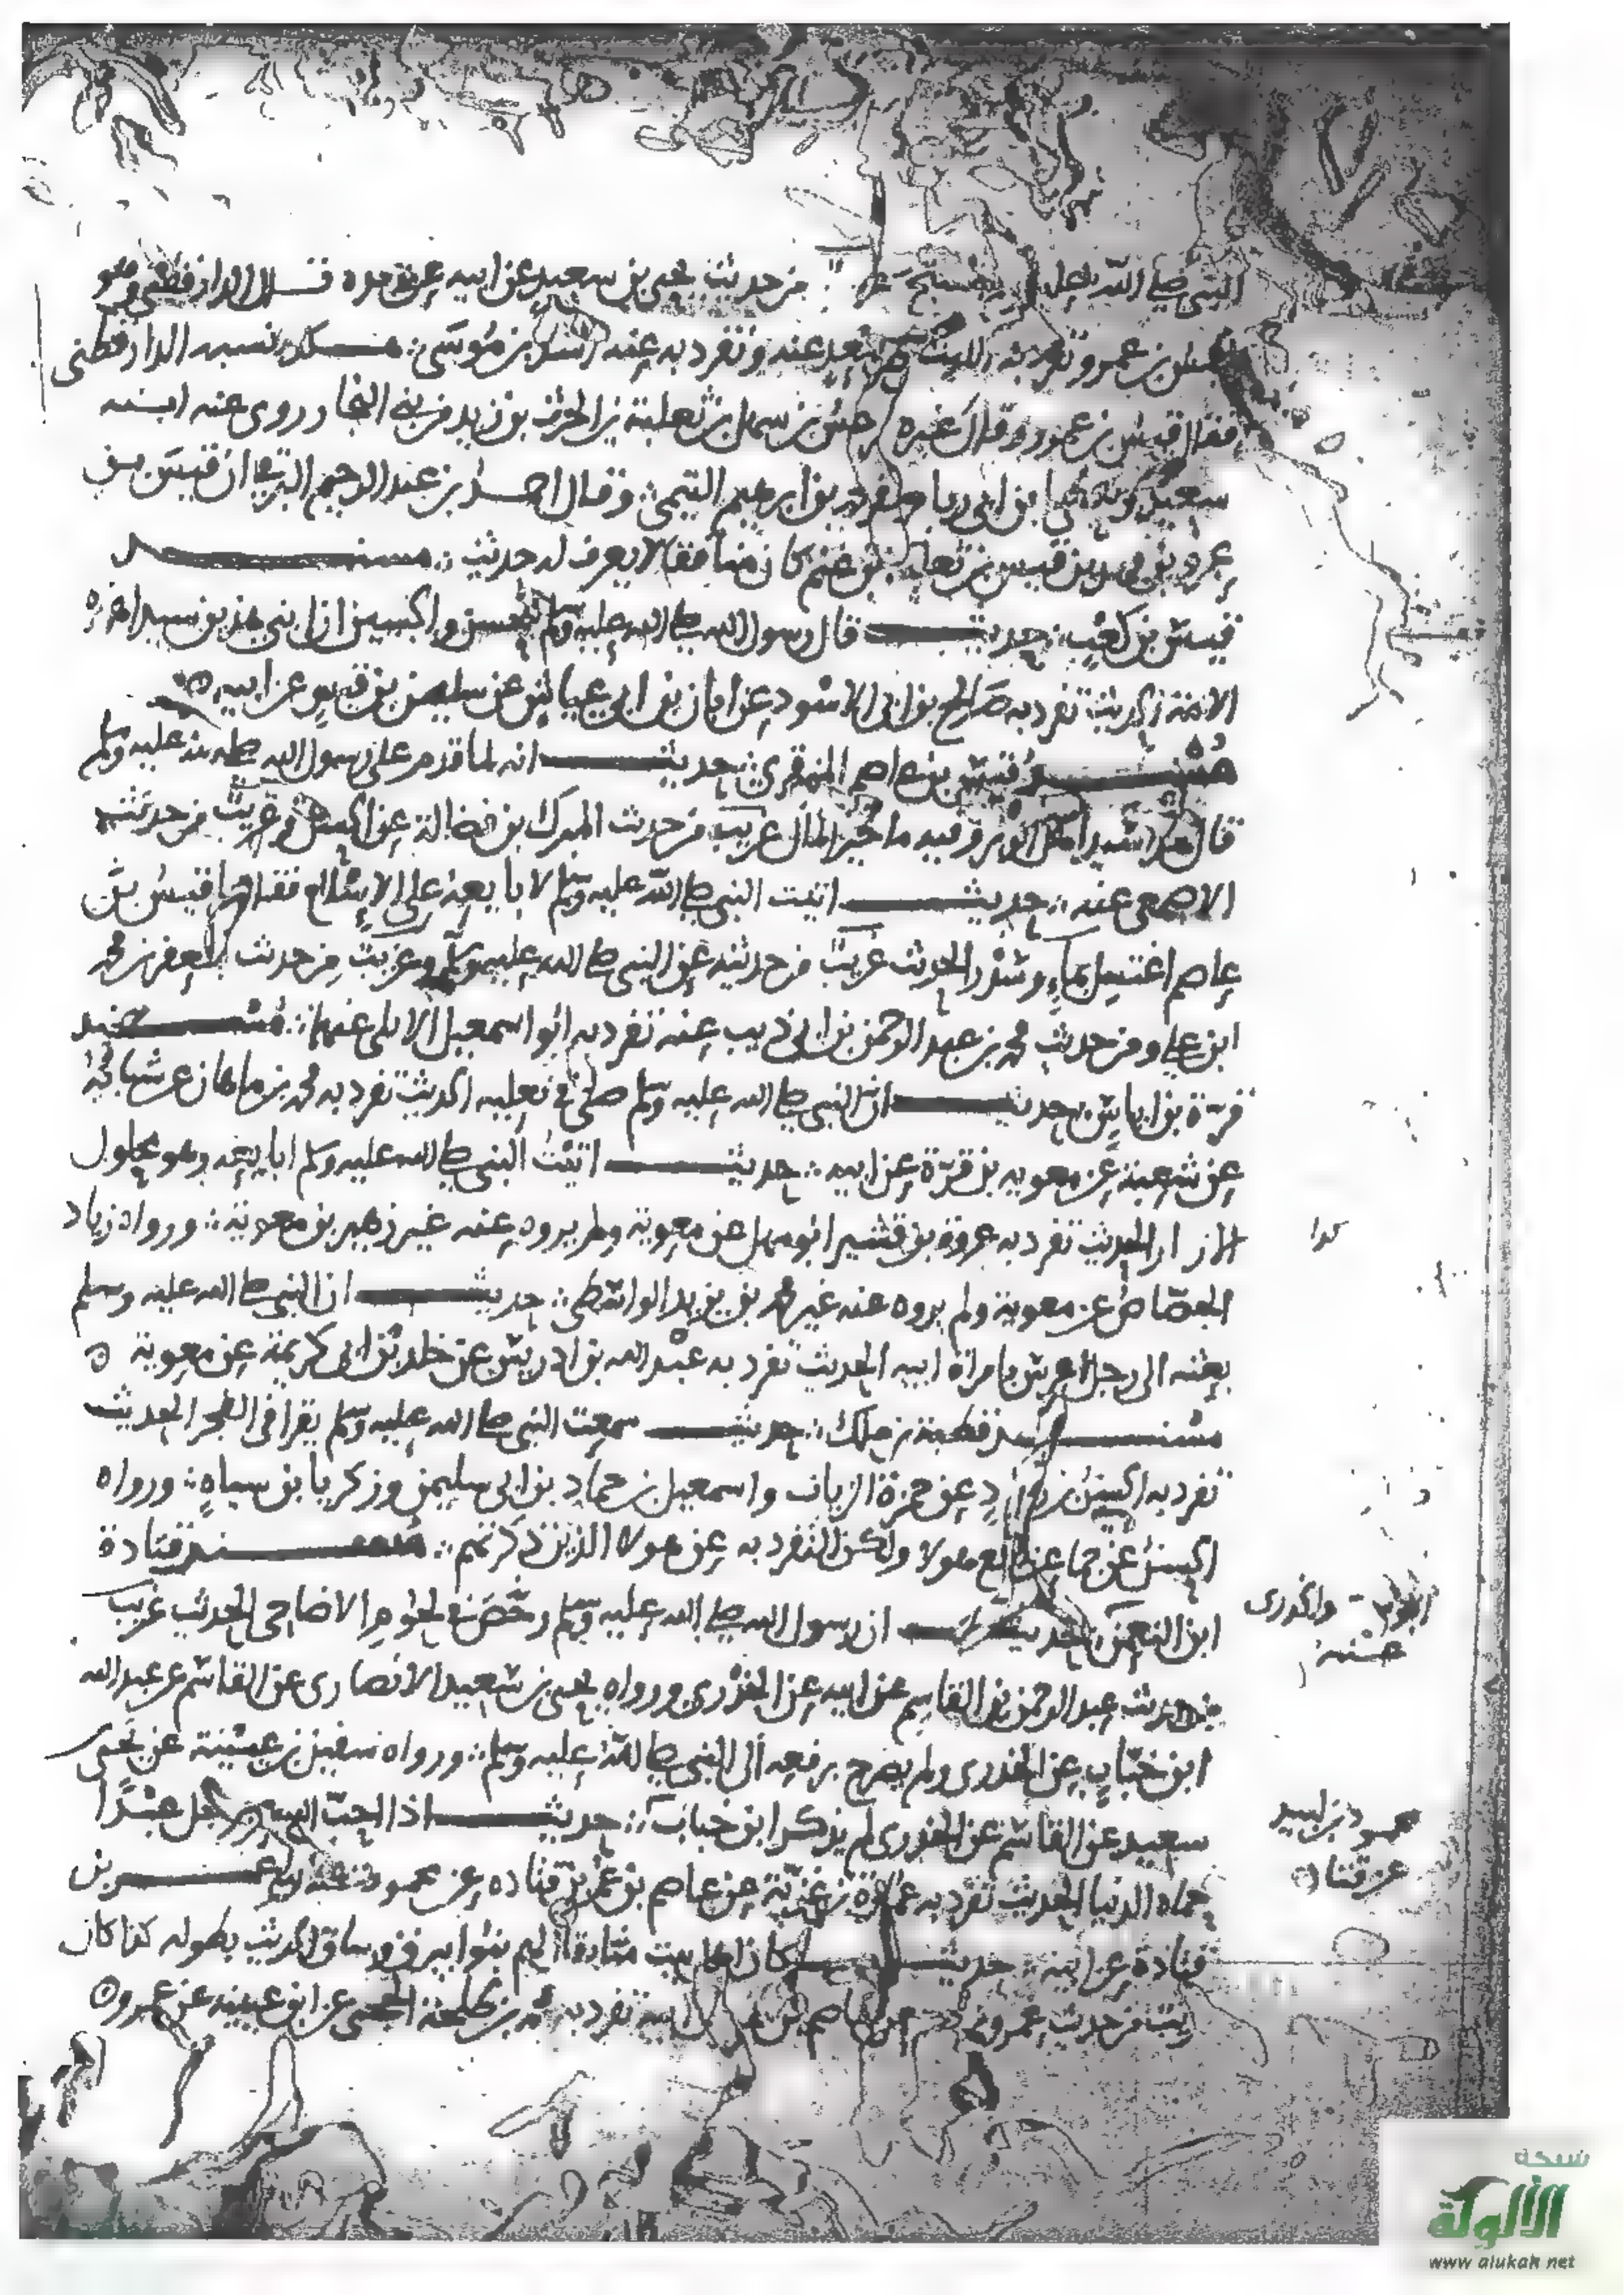 النبي صلى الله عليه من حديث يحيى بن سعيد عن ابيه عن جده قال الدارقطني وهو
قيس بن عمرو تفرد به الليث بن سعد عنه وتفرد به عنه اسد بن موسى هكذا نسبه الدارقطني
فقال قيس بن عمرو وقال غيره قيس بن سهل بن ثعلبة بن الحرث بن زيد من بني النجار روى عنه ابنه
سعيد وعطا ابن ابي رباح ومحمد بن ابرهيم التيمي وقال احمد بن عبد الرحيم البرقي ان قيس بن
عمرو بن قيس بن ثعلبة بن غنم كان منافقا لا يعرف له حديث مسند
قيس بن كعب حديث قال رسول الله صلى الله عليه وسلم للحسن والحسين ان ابني هذين سيدا هذه
الامة الحديث تفرد به صالح بن ابي الاسود عن ابان بن ابي عياش عن سليمن بن قيس عن ابيه
مسند قيس بن عاصم المنقري حديث انه لما قدم على رسول الله صلى الله عليه وسلم
قال هذا سيد اهل الوبر وفيه ما خير المال غريب من حديث المبرك بن فضالة عن الحسن وغريب من حديث
الاصمعي عنه حديث اتيت النبي صلى الله عليه وسلم لابايعه على الاسلام فقال يا قيس بن
عاصم اغتسل بماء وسدر الحديث غريب من حديثه عن النبي صلى الله عليه وسلم وغريب من حديث جعفر بن محمد
ابن علي ومن حديث محمد بن عبد الرحمن بن ابي ذيب عنه تفرد به ابو اسمعيل الايلي عنهما مسند
قرة بن اياس حديث ان النبي صلى الله عليه وسلم صلى في نعليه الحديث تفرد به محمد بن ماهان عن
عن شعبة عن معويه بن قرة عن ابيه حديث اتيت النبي صلى الله عليه وسلم ابايعه وهو محلول
الازرار الحديث تفرد به عروة بن قشير ابو مهل عن معوية ولم يروه عنه غير زهير بن معوية ورواه زياد
الجصاص عن معوية ولم يروه عنه غير محمد بن يزيد الواسطي حديث ان النبي صلى الله عليه وسلم
بعثه الى رجل اعرس بامراة ابيه الحديث تفرد به عبد الله بن ادريس عن خلد بن ابي كريمة عن معوية
مسند قطبة بن ملك حديث سمعت النبي صلى الله عليه وسلم يقرا في الفجر الحديث
تفرد به الحسن بن عن حمزة الزيات واسمعيل بن حماد بن ابي سليمن وزكريا بن سياه ورواه
الحسن عن جماعة مع هولا ولكن التفرد به عن هولا الذين ذكرتهم مسند قتادة
ابن النعمن حديث ان رسول الله صلى الله عليه وسلم رخص في لحوم الاضاحي الحديث غريب
من حديث عبد الرحمن بن القاسم عن ابيه عن الخدري ورواه يحيى بن سعيد الانصاري عن القاسم عن عبد الله
ابن خباب عن الخدري ولم يصرح برفعه الى النبي صلى الله عليه وسلم ورواه سفين بن عيينة عن يحيى
سعيد عن القاسم عن الخدري لم يذكر ابن خباب حديث اذا احب الله عز وجل عبدا
حماه الدنيا الحديث تفرد به عمارة بن غزية عن عاصم بن عمر بن قتاده عن محمود عمر بن
قتادة عن ابيه حديث كان اهل بيت منا يقال لهم بنو ابيرق وساق الحديث بطوله كذا كان
من حديث عمرو عن عاصم بن عمر عن ابيه تفرد به بن طلحة عن ابن عيينه عن عمرو
كذا
والخدري
عنه
محمود بن لبيد
عن قتادة
شبكة
الألوكة
www alukah net